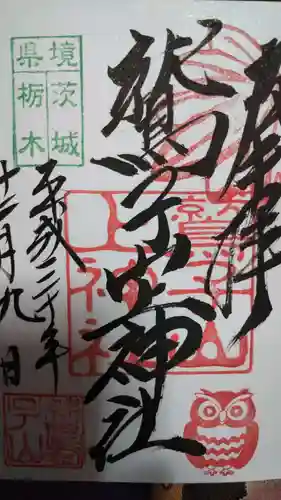 奉拝
鷲子山上神社
県境
茨城
栃木
平成三十年
十二月九日
鷲子山
上神社